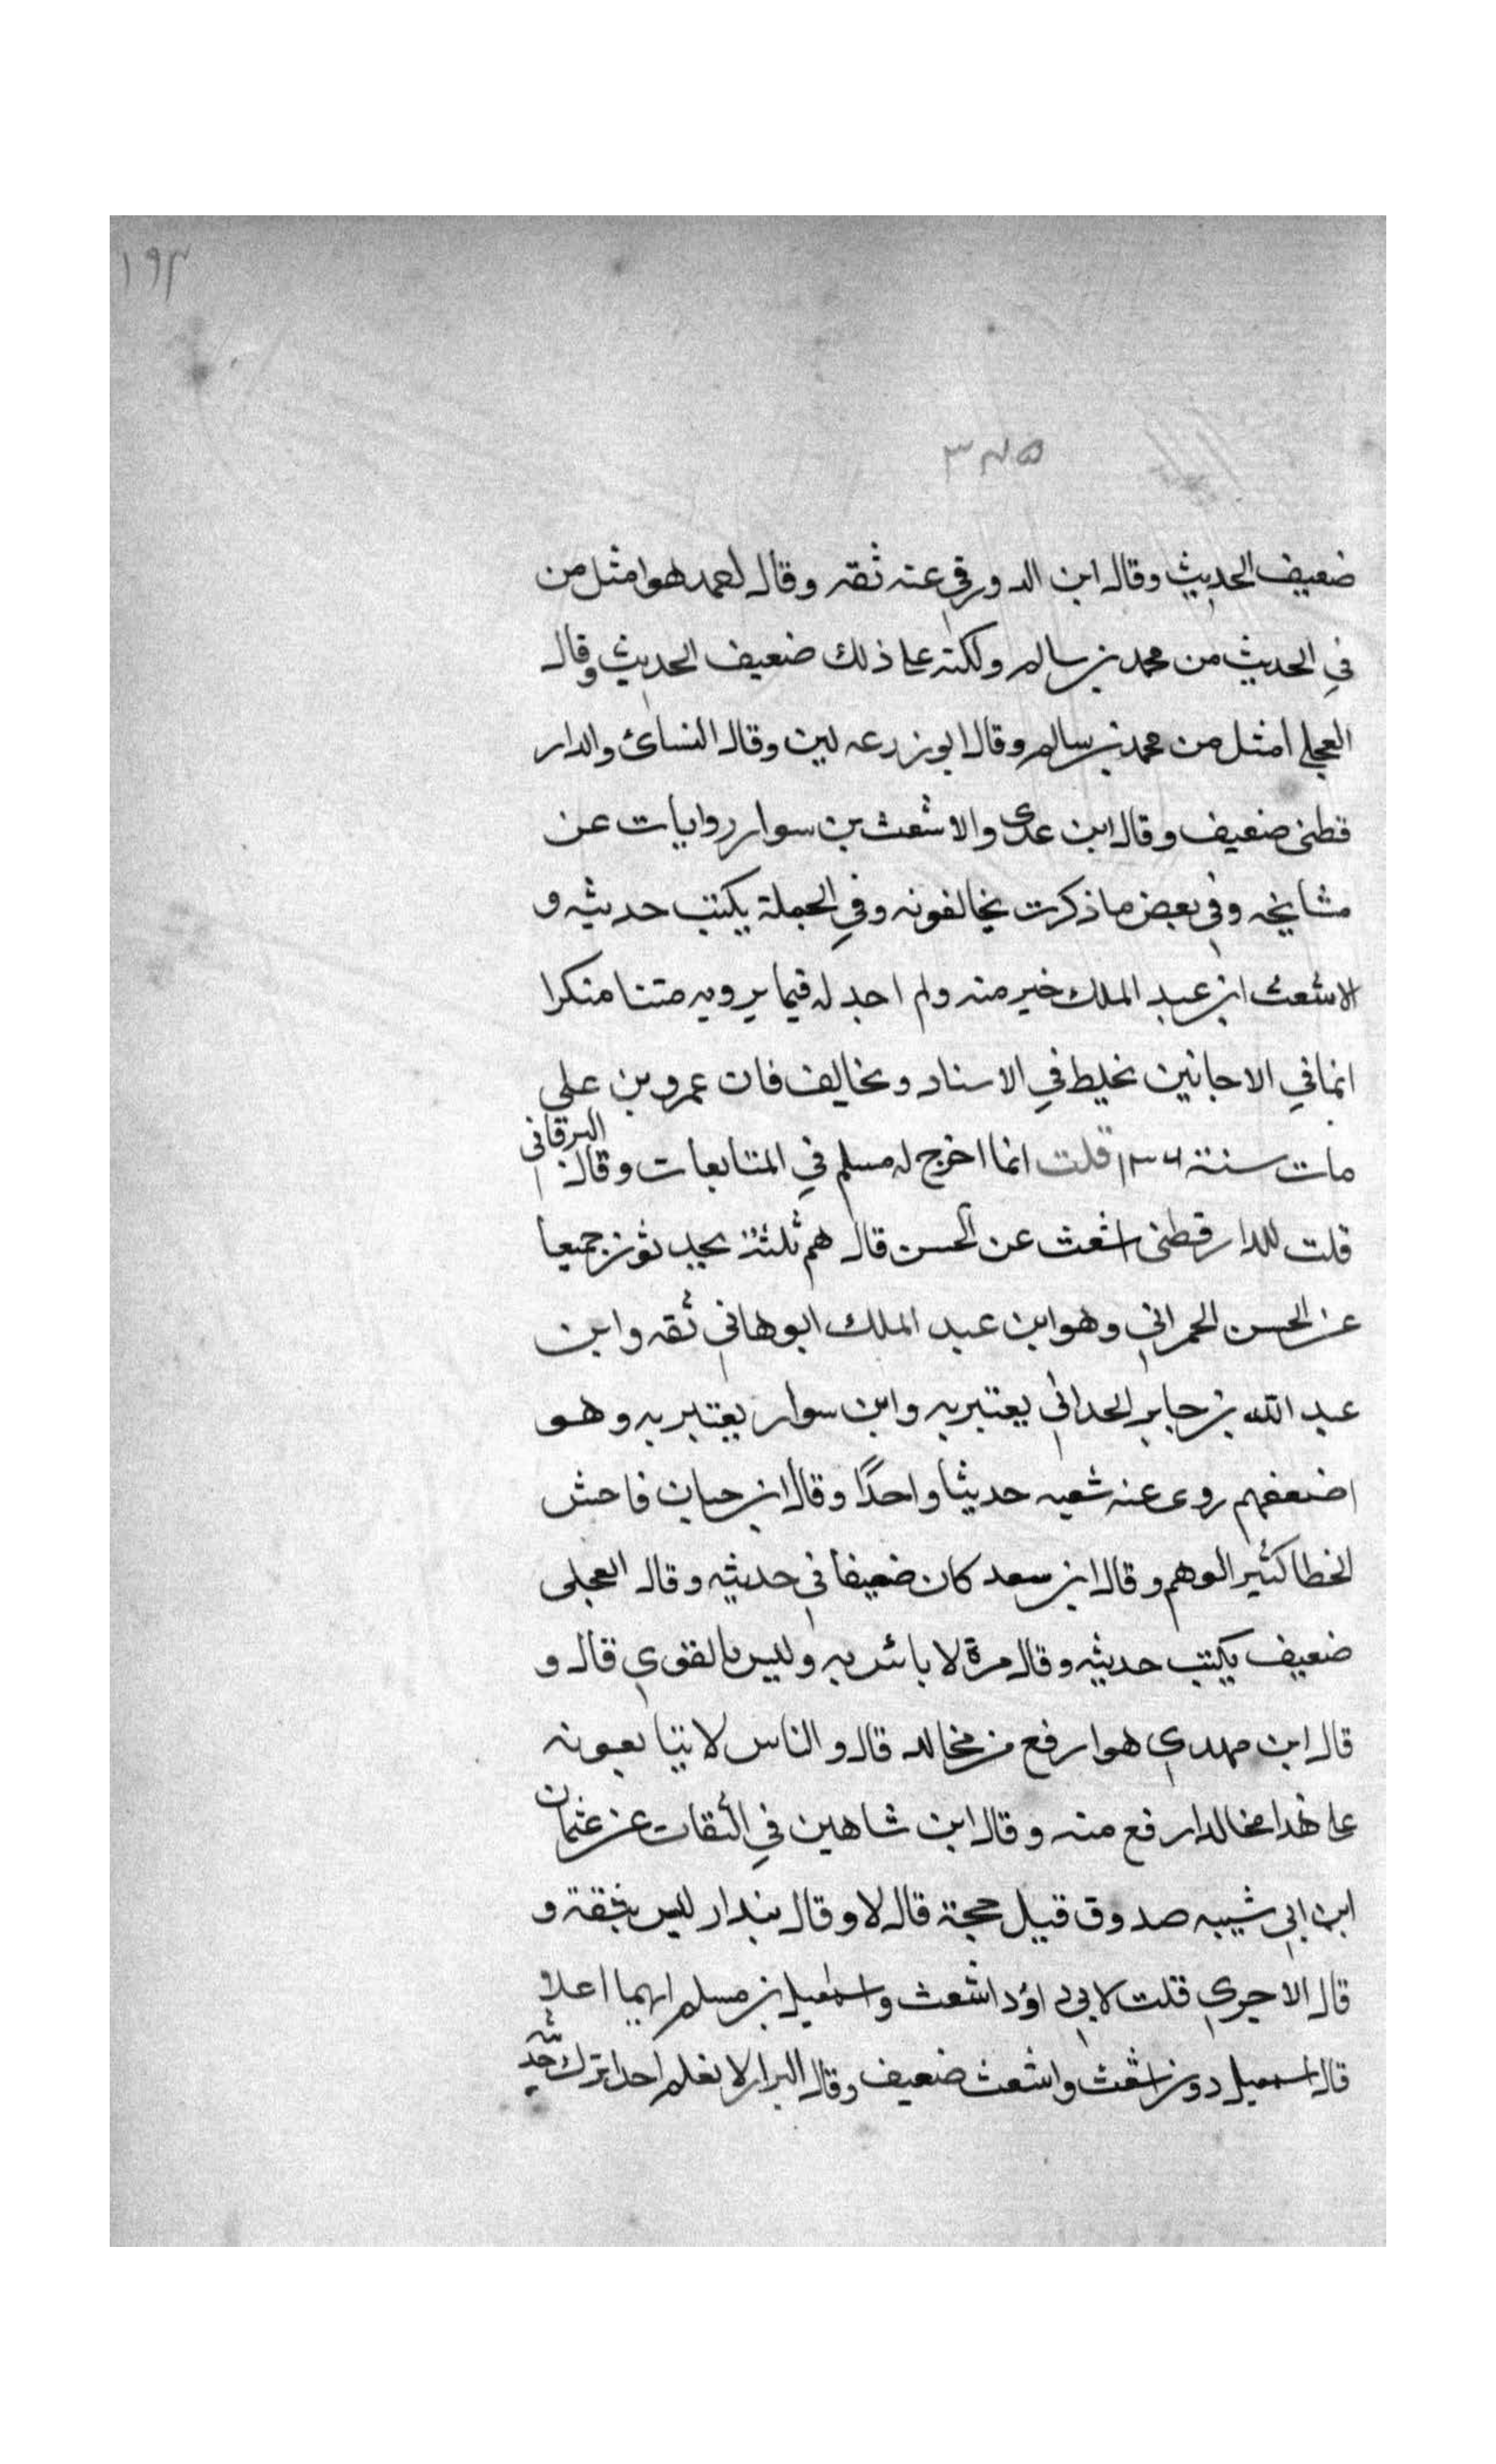 ١٩٣
٣٧٥
ضعيف الحديث وقال ابن الدورقي عنه ثقه وقال احمد هو امثل من
في الحديث من محمد بن سالم ولكنه على ذلك ضعيف الحديث وقال
العجلي امثل من محمد بن سالم وقال ابو زرعه لين وقال النسائ والدار
قطني ضعيف وقال ابن عدى والاشعث بن سوار روايات عن
مشايخه وفي بعض ما ذكرت يخالفونه وفي الجملة يكتب حديثه و
الاشعث ابن عبد الملك خير منه ولم اجد له فيما يرويه متنا منكرا
انما في الاحانين يخلط في الاسناد ويخالف فان عمرو بن على
مات سنة ١٣٦ قلت انما اخرج له مسلم في المتابعات وقال البرقانى
قلت للدارقطنى اشعث عن الحسن قال هم ثلثة يحدثون جميعا
عن الحسن الحمراني وهو ابن عبد الملك ابو هاني ثقه وابن
عبد الله بن جابر الحداني يعتبر به وابن سوار يعتبر به وهو
اضعفهم روى عنه شعبه حديثا واحدًا وقال ابن حبان فاحش
الخطا كثير الوهم وقال ابن سعد كان ضعيفا في حديثه وقال العجلى
ضعيف يكتب حديثه وقال مرة لا باس به وليس بالقوي قال و
قال ابن مهدي هو ارفع من مخالد قال والناس لا يتابعونه
على هذا مخالد ارفع منه وقال ابن شاهين في الثقات عن عثمان
ابن ابي شيبه صدوق قيل حجة قال لا وقال بندار ليس بثقة و
قال الاجري قلت لابي داؤد اشعث واسمعيل بن مسلم ايهما اعلا
قال اسمعيل دون اشعث واشعث ضعيف وقال البزار لا نعلم احدا ترك حديثه